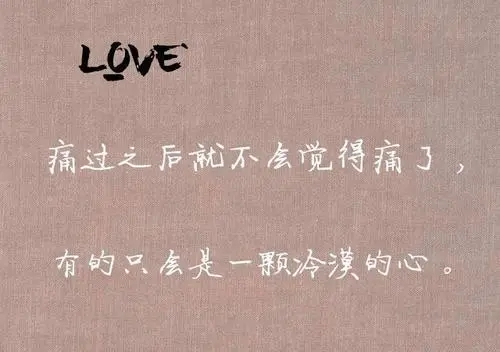 LOVE
痛过之后就不会觉得痛了，
有的只会是一颗冷漠的心。